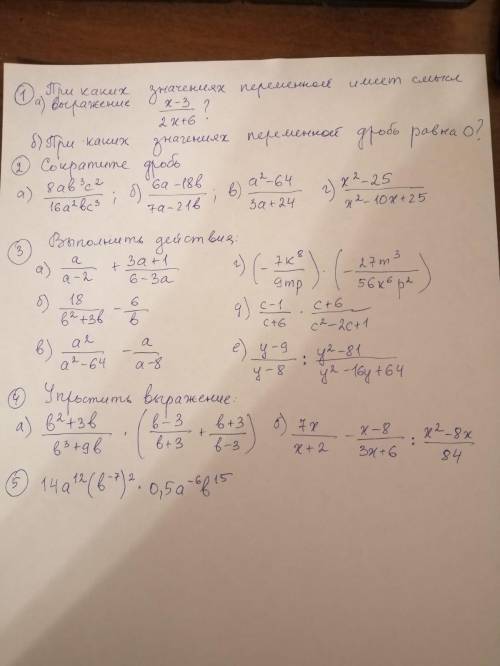 ① При каких значениях переменной имеет смысл
а) выражение (x-3)/(2x+6)?
б) При каких значениях переменной дробь равна 0?
② Сократите дробь
а) (8ab³c²)/(16a²bc³); б) (6a-18b)/(7a-21b); в) (a²-64)/(3a+24) г) (x²-25)/(x²-10x+25)
③ Выполнить действия:
а) a/(a-2) + (3a+1)/(6-3a) г) (-7k⁸/9mp) · (-27m³/56k⁶p²)
б) 18/(b²+3b) - 6/b д) (c-1)/(c+6) · (c+6)/(c²-2c+1)
в) a²/(a²-64) - a/(a-8) е) (y-9)/(y-8) : (y²-81)/(y²-16y+64)
④ Упростить выражение:
а) (b²+3b)/(b³+9b) · ((b-3)/(b+3) + (b+3)/(b-3)) б) 7x/(x+2) - (x-8)/(3x+6) : (x²-8x)/84
⑤ 14a¹²(b⁻⁷)² · 0,5a⁻⁶b¹⁵